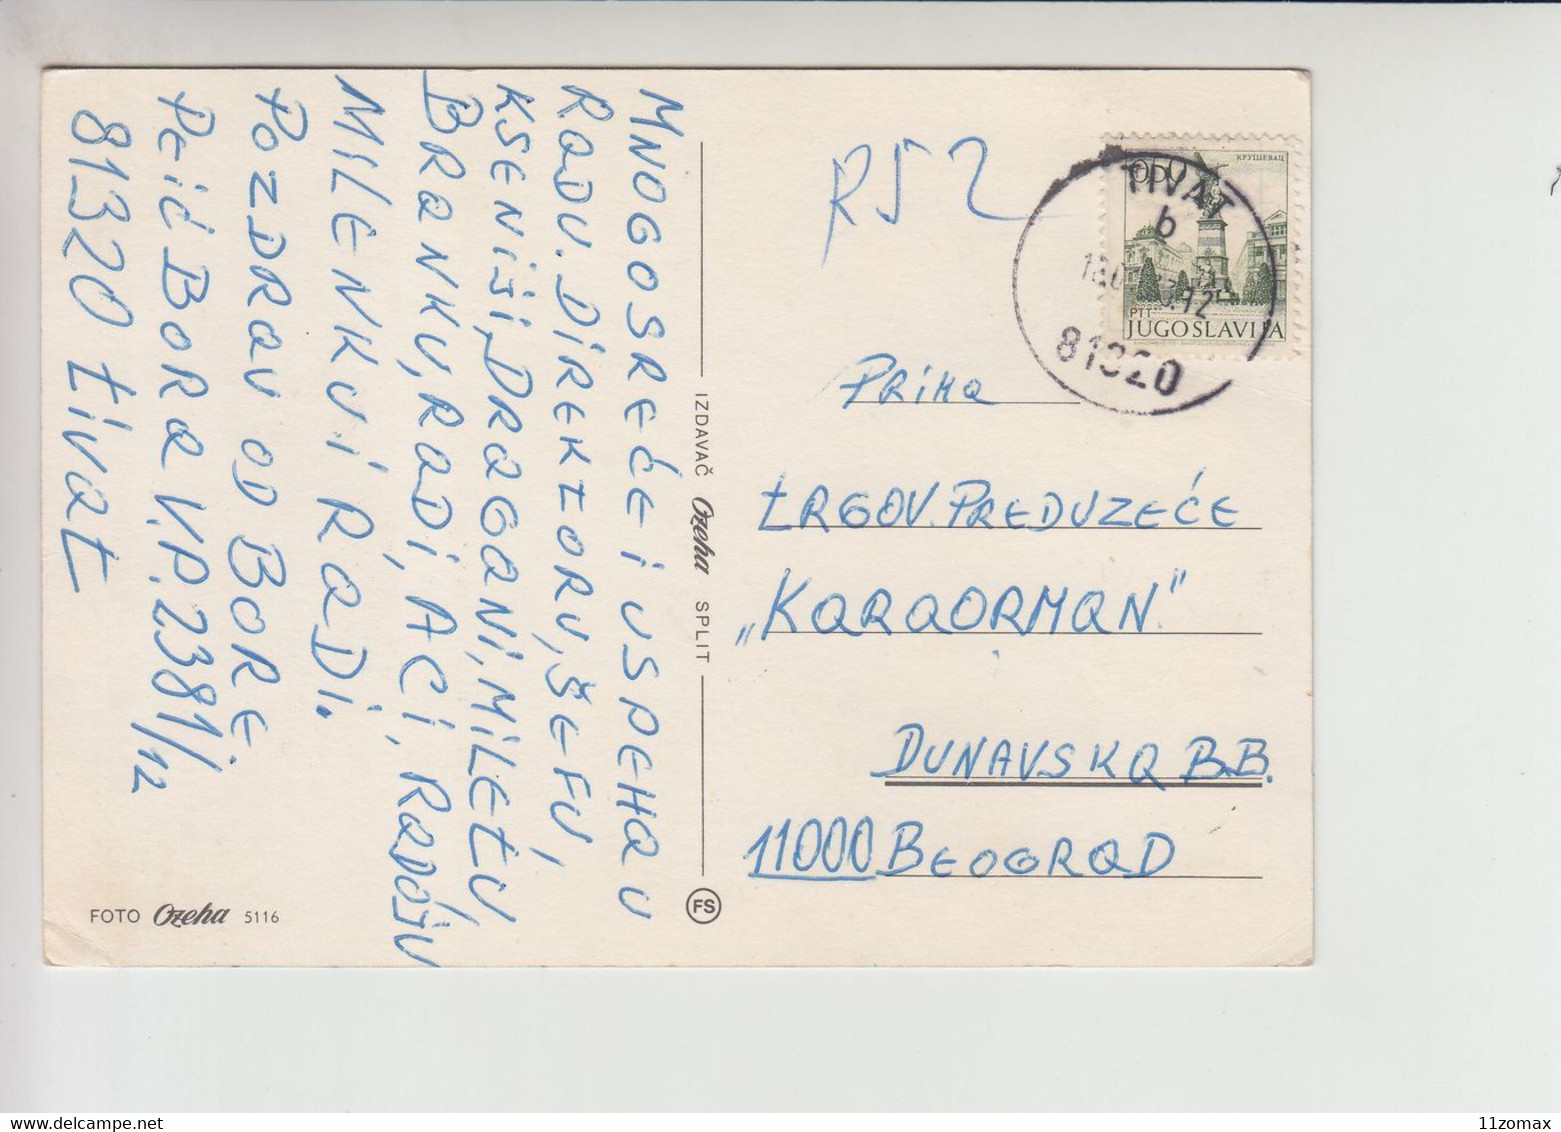 MNOGO SREĆE I USPEHA U
RADU. DIREKTORU, ŠEFU,
KSENIJI, DRAGANI, MILETU,
BRANKU, RADI, ACI, RADOJU
MILENKU I RADI.
POZDRAV OD BORE.
PEIĆ BORA V.P. 2381/12
81320 tivat
FOTO Ozeha 5116
IZDAVAČ Ozeha SPLIT
FS
R52
TIVAT
b
81320
КРУШЕВАЦ
PTT
JUGOSLAVIJA
PRIMA
tRGOV. PREDUZEĆE
„KARAORMAN"
DUNAVSKA B.B.
11000 BEOGRAD
11zomax